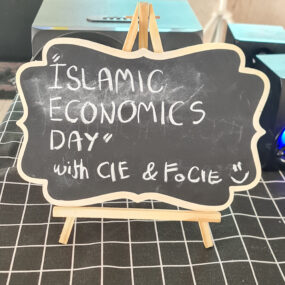 "İSLAMIC
ECONOMICS
DAY"
with CIE & FoCIE :)